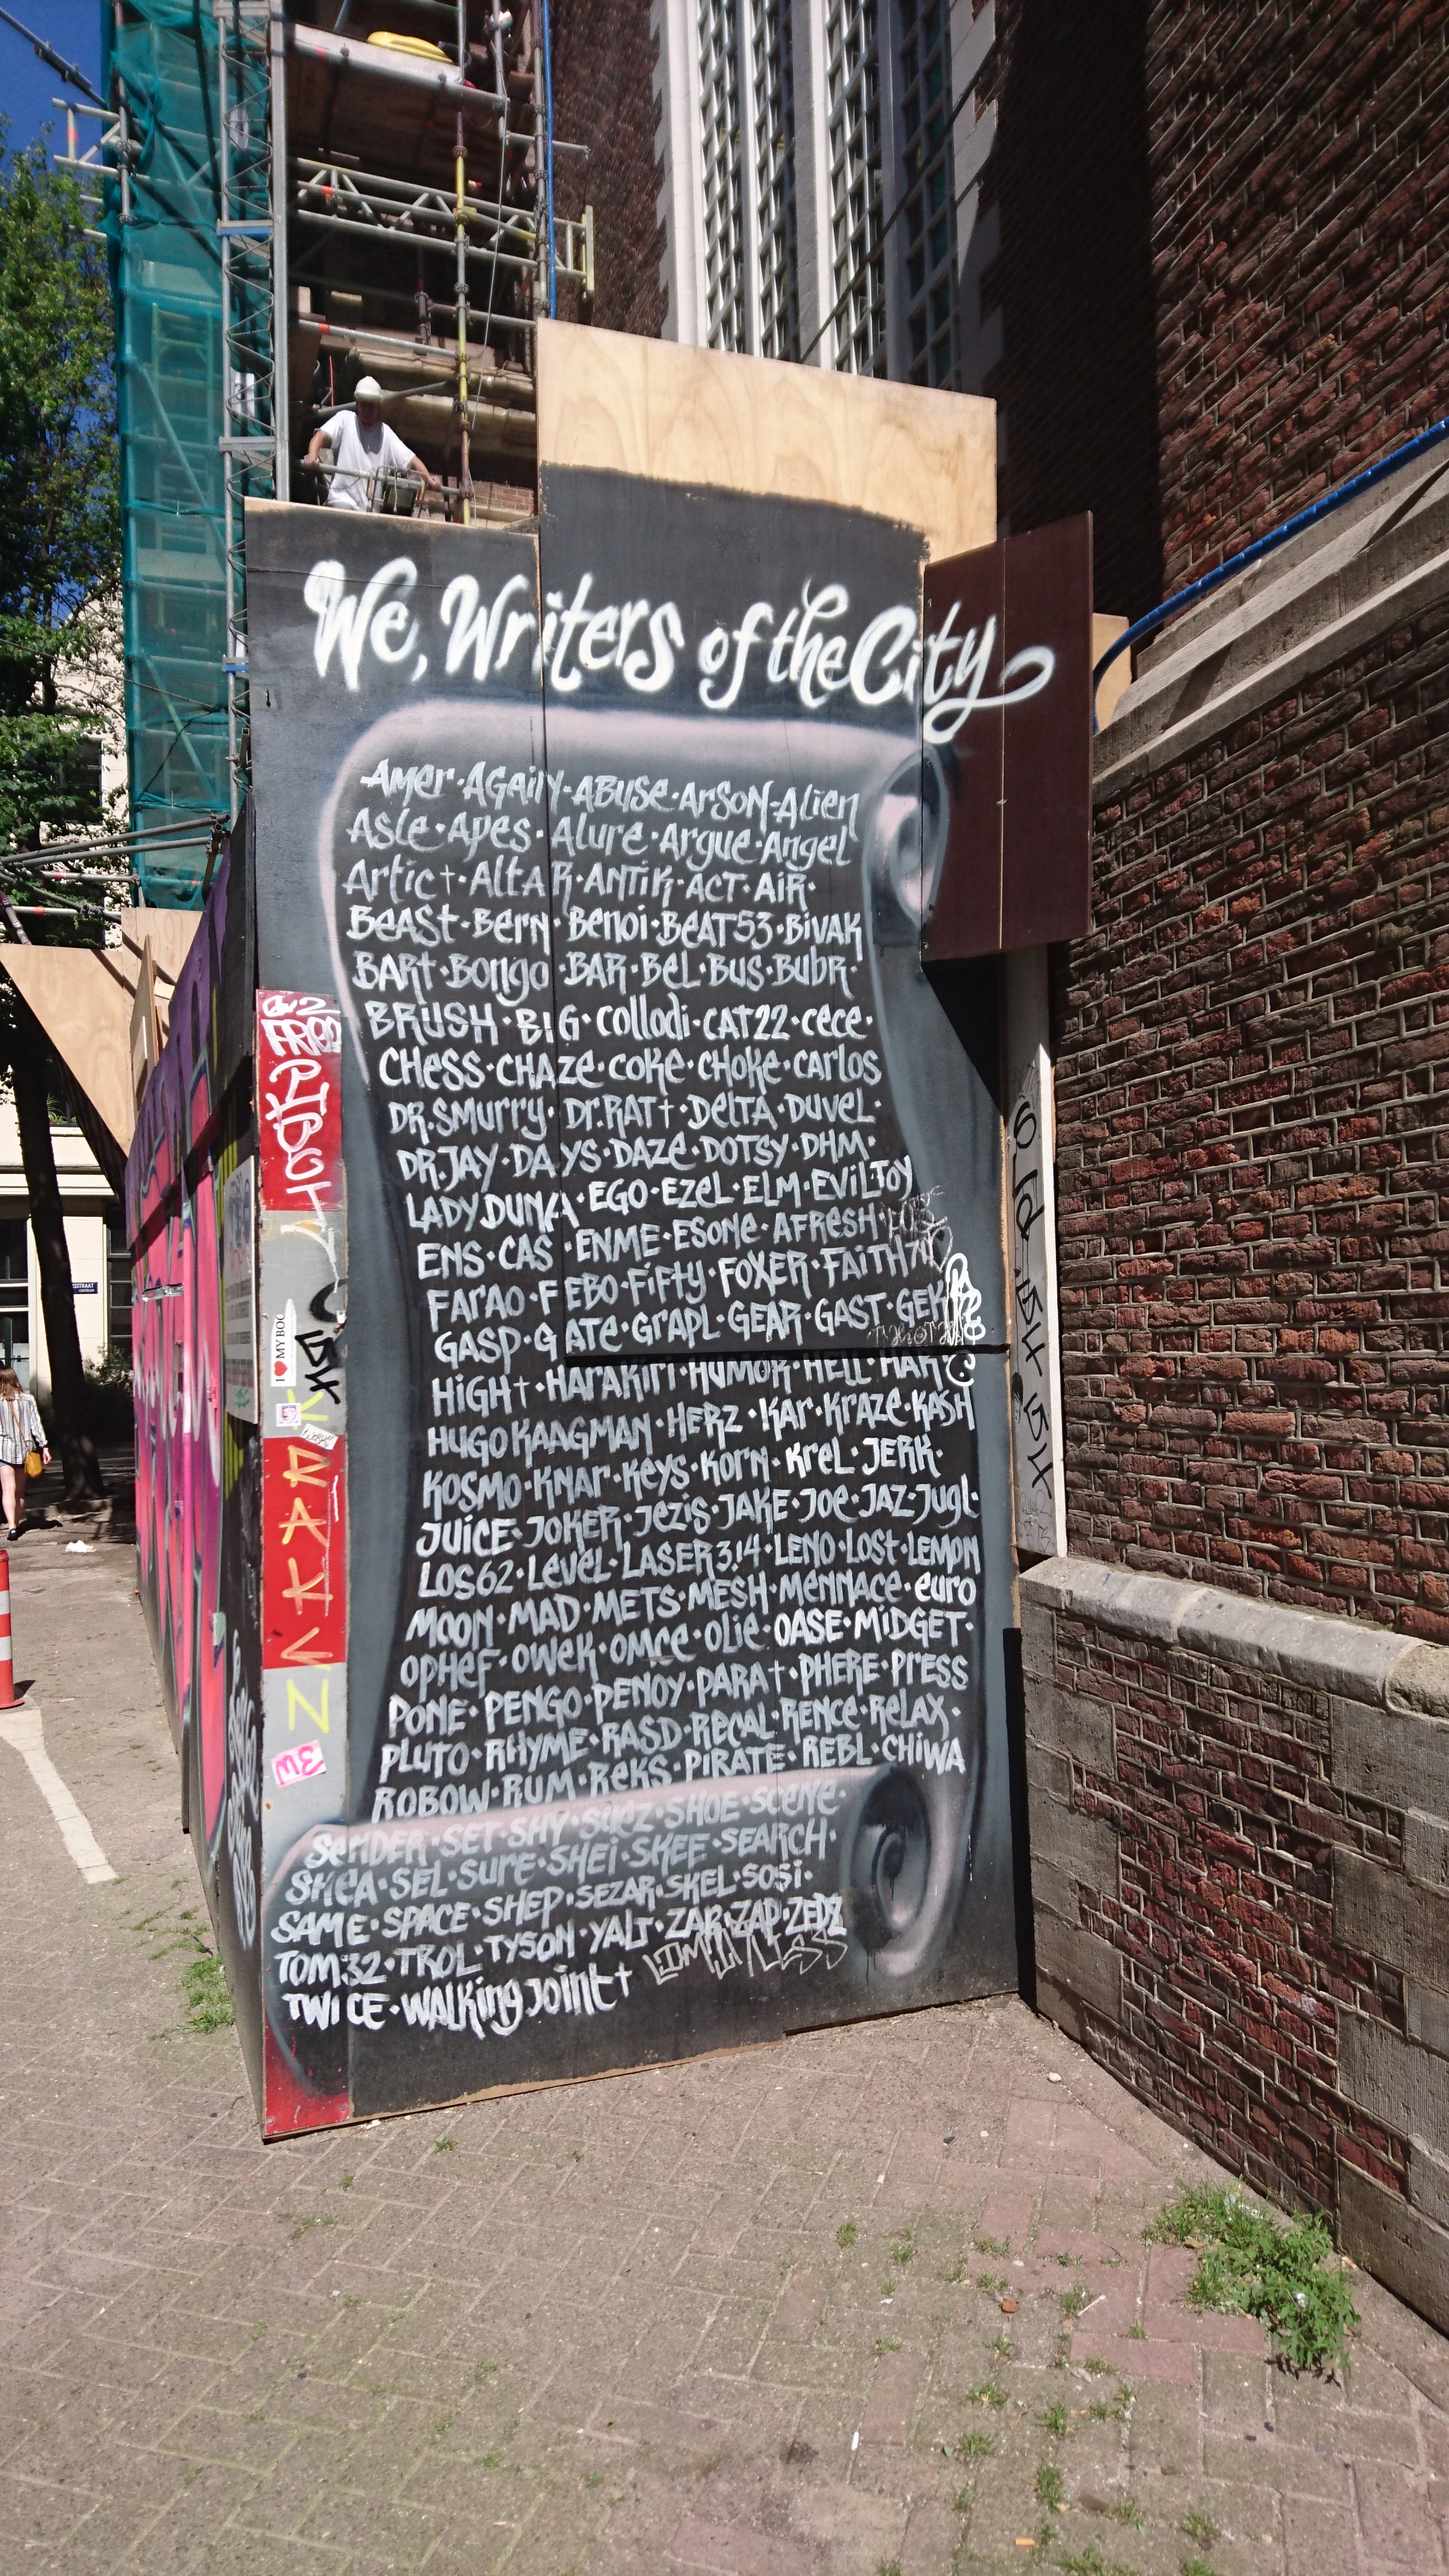 We, Writers of the City
Amer · Again · ABUSe · ArSON · Alien
ASle · Apes · Alure · Argue · Angel
Artic† · AltAR · ANTiK · ACT · AiR ·
BeASt · Bern · Benoi · BEAT53 · BivAK
BARt · Bongo · BAR · BeL · BUS · BUbR ·
BRUSH · BIG · Collodi · CAT22 · cece ·
CHeSS · CHAZe · COKe · CHOKe · CARLOS
DR.SMURRY · Dr.RAT† · DelTA · DUVeL ·
DR.JAY · DAYS · DAZe · DOTSY · DHM ·
LADY DUNA · EGO · EZeL · ELM · EViL TOY
ENS · CAS · ENME · ESONe · AFReSH ·
FARAO · FEBO · FiFty · FOXER · FAiTH
GASP · GATe · GrAPL · GEAR · GAST · GEK
HiGH† · HARAKiri · HUMOR · HELL
HUGO KAAGMAN · HERZ · KAr · KrAZe · KASH
KOSMO · KNAr · Keys · KOrn · KreL · JERK ·
JUiCE · JOKER · JeZiS · JAKE · JOe · JAZ · JUgL ·
LOS62 · LeveL · LASER 3.14 · LENO · LOSt · LEMON
MOON · MAD · METS · MESH · MENNACE · euro
OPHeF · OWeK · OMCe · OLie · OASE · MiDGET ·
PONE · PENGO · PENOY · PARA† · PHERE · PreSS
PLUTO · RHYME · RASD · RECAL · RENCe · ReLAX ·
ROBOW · RUM · ReKS · PIRATE · REBL · CHiWA
SeNDER · SET · SHY · SUeZ · SHOE · SCeNe ·
SHeA · SEL · SUre · SHEi · SKEF · SEARCH ·
SAME · SPACE · SHEP · SEZAR · SKEL · SOSi ·
TOM32 · TROL · TYSON · YALT · ZAR · ZAP · ZEDZ
TWiCE · WALKing JOint†
I ♥ MY BOO
KRAKEN
ME